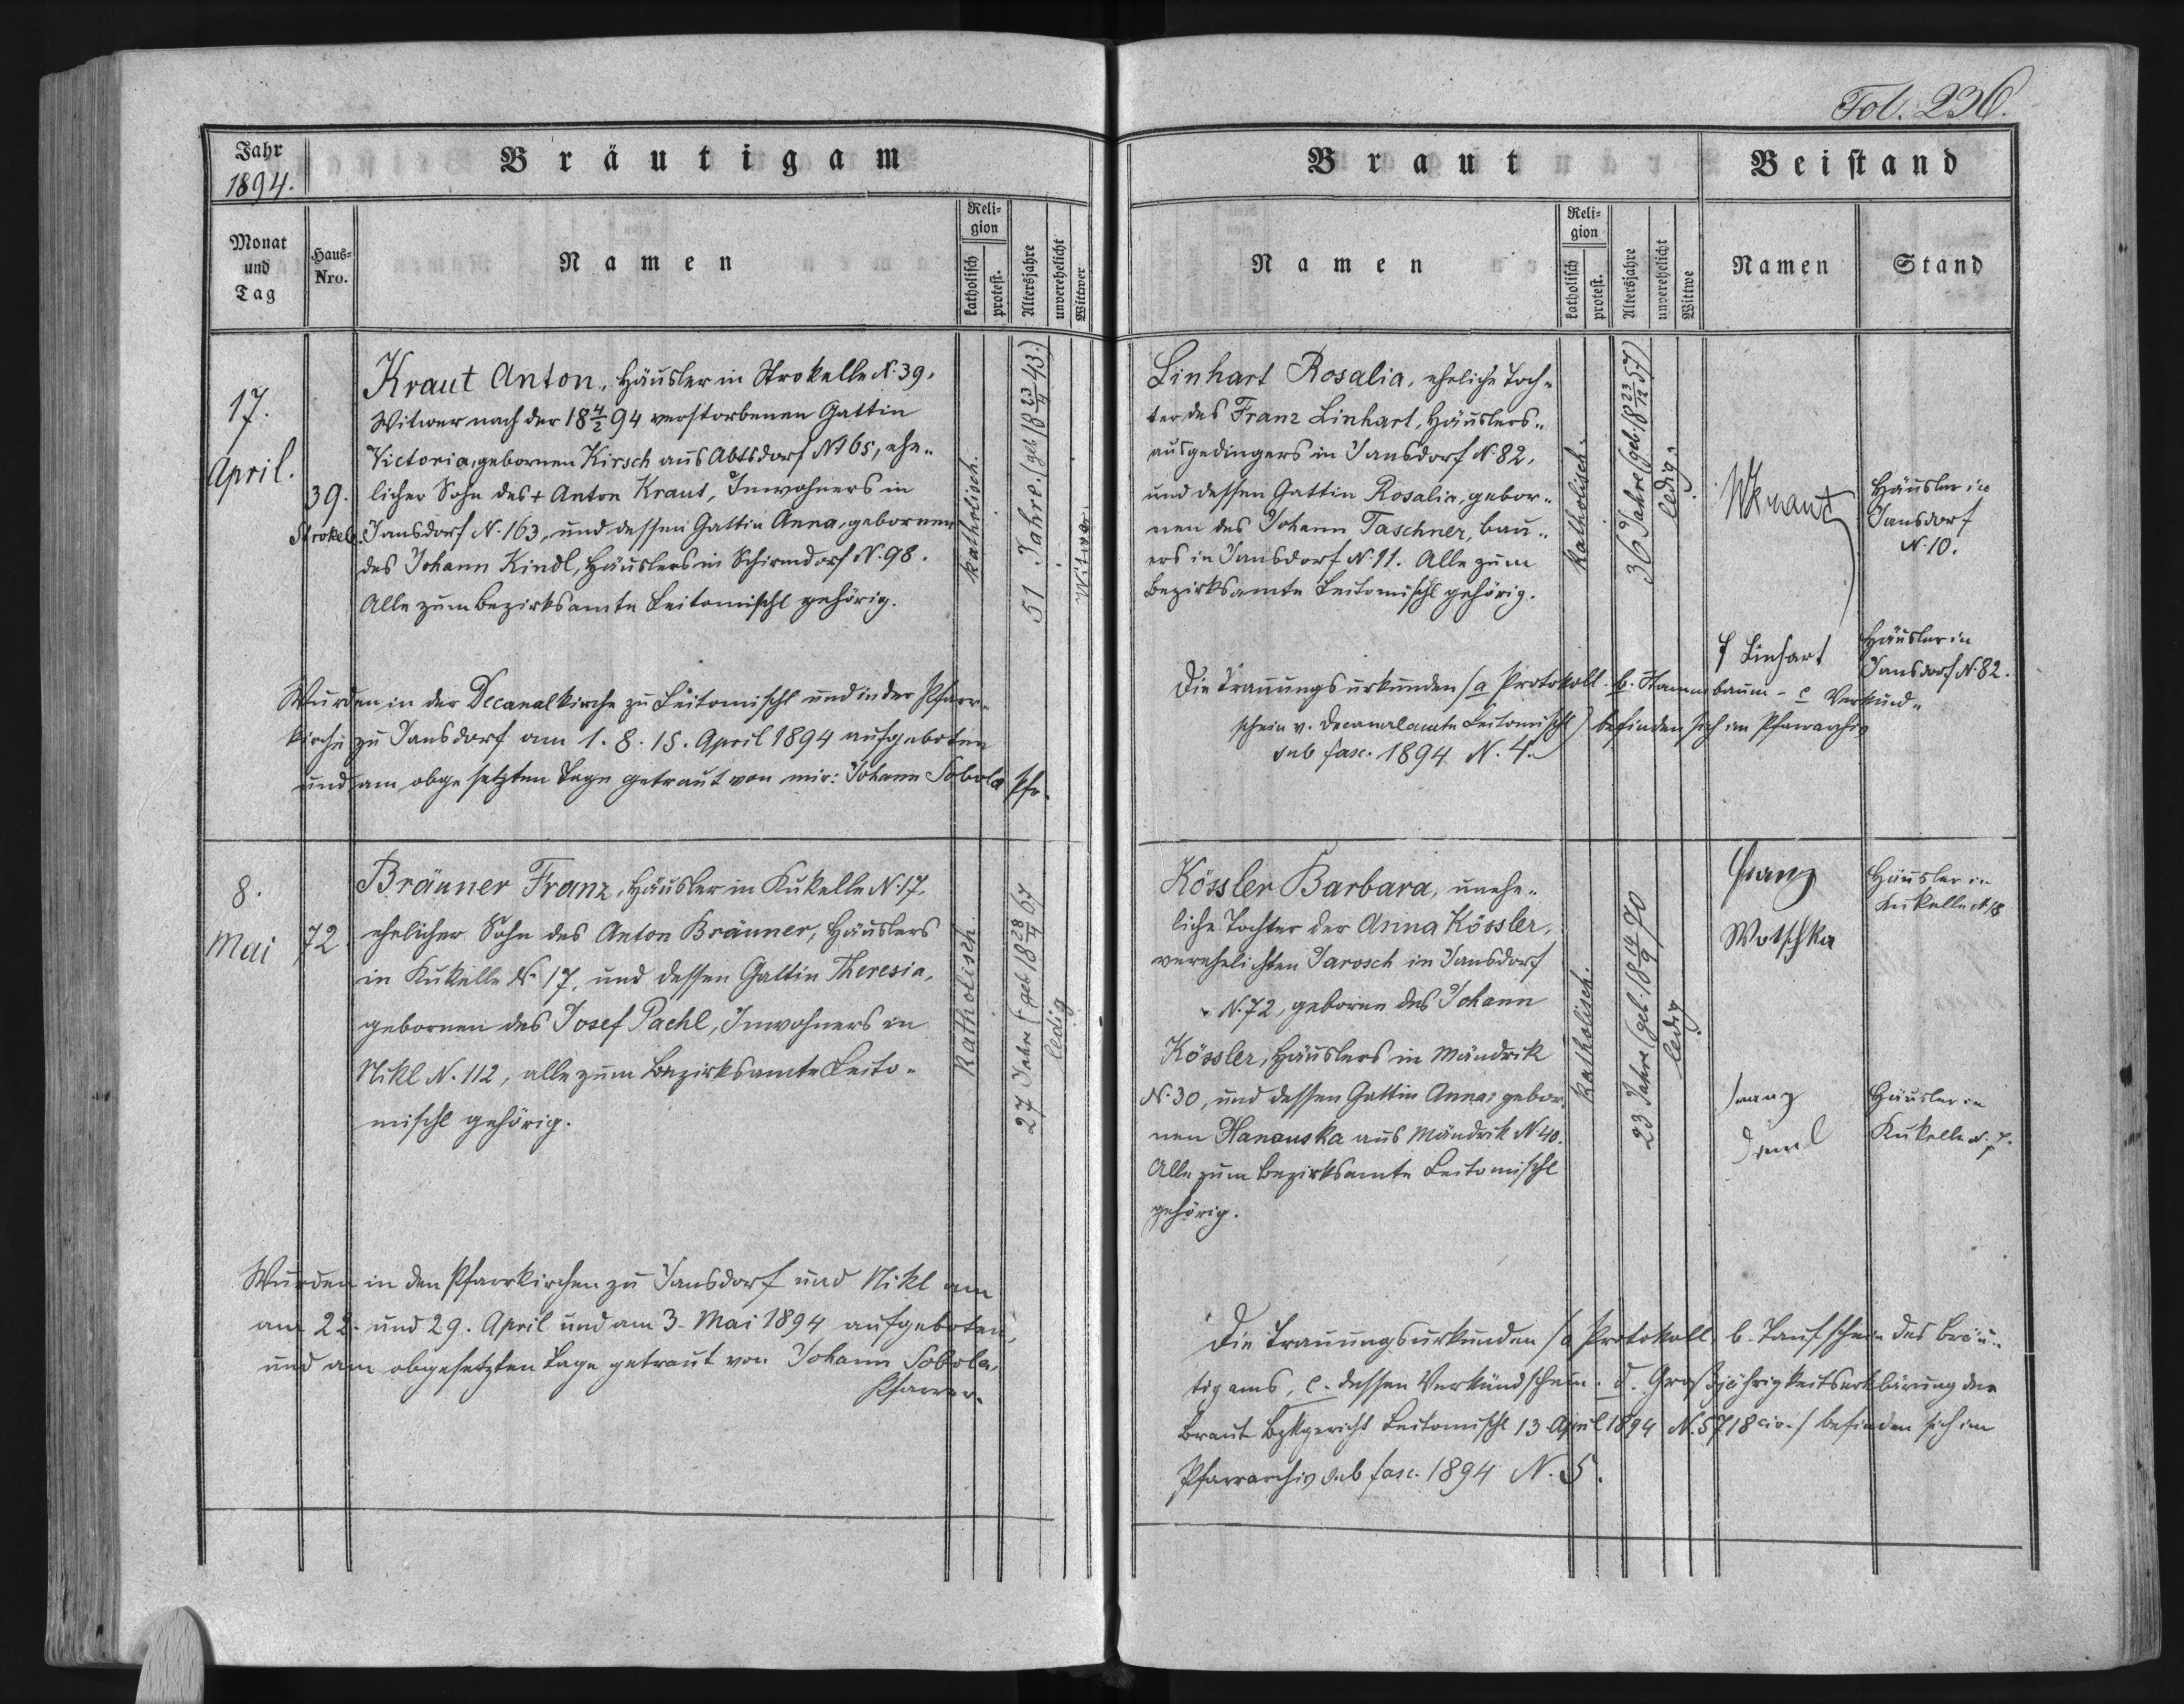 Fol. 236.
Jahr
1894.
Bräutigam
Braut
Beistand
Monat
und
Tag
Haus=
Nro.
Namen
Reli=
gion
katholisch
protest.
Altersjahre
unverehelicht
Wittwer
Namen
Reli=
gion
katholisch
protest.
Altersjahre
unverehelicht
Wittwe
Namen
Stand
17.
April.
39.
Strokele.
Kraut Anton, Häusler in Strokelle N. 39,
Witwer nach der 18 4/2 94 verstorbenen Gattin
Victoria, gebornen Kirsch aus Abtsdorf N 165, ehe„
licher Sohn des + Anton Kraut, Inwohners in
Jansdorf N. 163, und dessen Gattin Anna, gebornen
des Johann Kindl, Häuslers in Schirmdorf N. 98.
Alle zum Bezirksamte Leitomischl gehörig.
katholisch.
51 Jahre (geb 18 23/4 43.)
Witwer.
Wurden in der Decanalkirche zu Leitomischl und in der Pfarr„
kirche zu Jansdorf am 1. 8. 15. April 1894 aufgeboten
und am obgesetzten Tage getraut von mir: Johann Sobola Pfr.
Linhart Rosalia, eheliche Toch„
ter des Franz Linhart, Häuslers„
ausgedingers in Jansdorf N. 82,
und dessen Gattin Rosalia, gebor„
nen des Johann Taschner, Bau„
ers in Jansdorf N. 11. Alle zum
Bezirksamte Leitomischl gehörig.
katholisch.
36 Jahre (geb. 18 23/12 57)
ledig.
Häusler in
Jansdorf
N. 10.
F Linhart
Häusler in
Jansdorf N. 82.
Die Trauungsurkunden (a Protokoll. b. Stammbaum - c Verkünd„
schein v. Decanalamte Leitomischl) befinden sich im Pfarrarchiv
sub fasc. 1894 N. 4.
8.
Mai
72
Bräuner Franz, Häusler in Kukelle N. 17,
ehelicher Sohn des Anton Bräuner, Häuslers
in Kukelle N. 17, und dessen Gattin Theresia,
gebornen des Josef Pachl, Inwohners in
Nikl N. 112, alle zum Bezirksamte Leito„
mischl gehörig.
Katholisch
27 Jahre (geb 18 28/4 67
ledig
Wurden in den Pfarrkirchen zu Jansdorf und Nikl am
am 22. und 29. April und am 3. Mai 1894 aufgeboten,
und am obgesetzten Tage getraut von Johann Sobola,
Pfarrer.
Kössler Barbara, unehe„
liche Tochter der Anna Kössler,
verehelichten Jarosch in Jansdorf
N. 72, geborne des Johann
Kössler, Häuslers in Mändrik
N. 30, und dessen Gattin Anna, gebor„
nen Hanauska aus Mändrik N. 40.
Alle zum Bezirksamte Leitomischl
gehörig.
katholisch.
23 Jahre (geb. 18 14/9 70
ledig
Franz
Wotschka
Häusler in
Kukelle N. 18
Franz
Häusler in
Kukelle N. 7.
Die Trauungsurkunden (a Protokoll, b. Taufschein des Bräu„
tigams, c. dessen Verkündschein. d. Großjährigkeitserklärung der
Braut Bzkgericht Leitomischl 13. April 1894 N. 5718 civ.) befinden sich im
Pfarrarchiv sub fasc. 1894 N. 5.